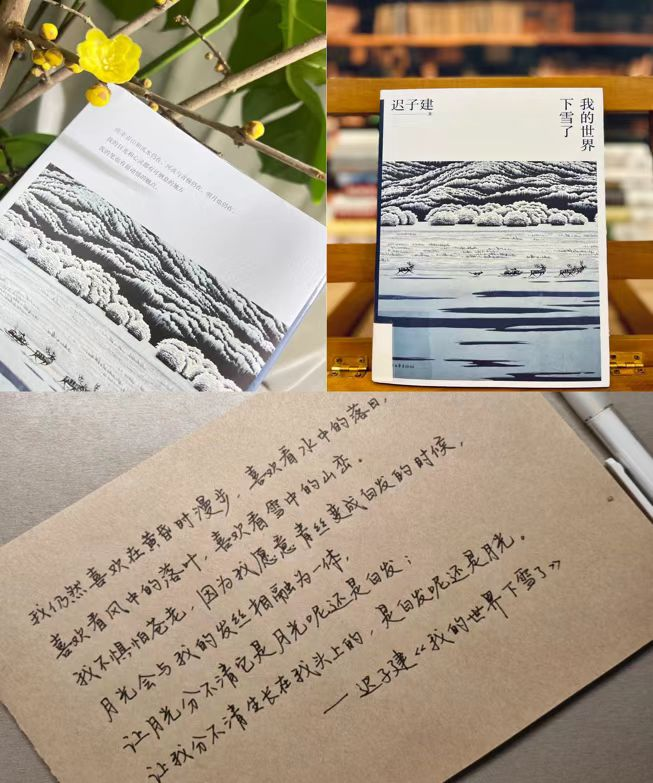 我的世界
下雪了
迟子建
我仍然喜欢在黄昏时漫步，喜欢看水中的落日，
喜欢看风中的落叶，喜欢看雪中的山峦。
我不惧怕苍老，因为我愿意青丝变成白发的时候，
月光会与我的发丝相融为一体，
让月光分不清它是月光呢还是白发；
让我分不清生长在我头上的，是白发呢还是月光。
—迟子建《我的世界下雪了》